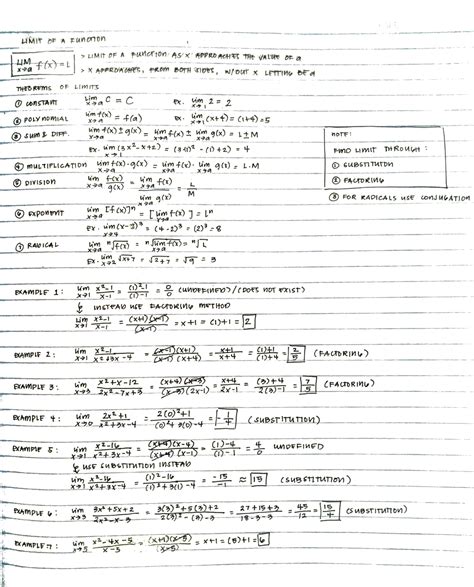 LIMIT OF A FUNCTION
LIM x→a f(x) = L
> LIMIT OF A FUNCTION AS X APPROACHES THE VALUE OF a
> X APPROACHES, FROM BOTH SIDES, W/OUT X LETTING BE a
THEOREMS OF LIMITS
① CONSTANT lim x→a C = C ex. lim x→1 2 = 2
② POLYNOMIAL lim x→a f(x) = f(a) ex. lim x→1 (x+4) = (1+4) = 5
③ SUM & DIFF. lim x→a f(x) ± g(x) = lim x→a f(x) ± lim x→a g(x) = L ± M
Ex. lim x→1 (3x²-x+2) = (3(1)² - (1) + 2) = 4
④ MULTIPLICATION lim x→a f(x)·g(x) = lim x→a f(x) · lim x→a g(x) = L·M
⑤ DIVISION lim x→a f(x)/g(x) = lim x→a f(x) / lim x→a g(x) = L/M
⑥ EXPONENT lim x→a [f(x)]ⁿ = [lim x→a f(x)]ⁿ = Lⁿ
Ex. lim x→4 (x-2)³ = (4-2)³ = (2)³ = 8
⑦ RADICAL lim x→a ⁿ√f(x) = ⁿ√lim x→a f(x) = ⁿ√L
Ex. lim x→2 √x+7 = √2+7 = √9 = 3
NOTE:
FIND LIMIT THROUGH:
① SUBSTITUTION
② FACTORING
③ FOR RADICALS USE CONJUGATION
EXAMPLE 1: lim x→1 x²-1/x-1 = (1)²-1/(1)-1 = 0/0 (UNDEFINED)/(DOES NOT EXIST)
↳ INSTEAD USE FACTORING METHOD
lim x→1 x²-1/x-1 = (x+1)(x-1)/(x-1) = x+1 = (1)+1 = 2
EXAMPLE 2: lim x→1 x²-1/x²+3x-4 = (x-1)(x+1)/(x-1)(x+4) = x+1/x+4 = (1)+1/(1)+4 = 2/5 (FACTORING)
EXAMPLE 3: lim x→3 x²+x-12/2x²-7x+3 = (x+4)(x-3)/(x-3)(2x-1) = x+4/2x-1 = (3)+4/2(3)-1 = 7/5 (FACTORING)
EXAMPLE 4: lim x→0 2x²+1/x²+3x-4 = 2(0)²+1/(0)²+3(0)-4 = -1/4 (SUBSTITUTION)
EXAMPLE 5: lim x→1 x²-16/x²+3x-4 = (x+4)(x-4)/(x+4)(x-1) = (1)-4/(1)-1 = 4/0 UNDEFINED
↳ USE SUBSTITUTION INSTEAD
lim x→1 x²-16/x²+3x-4 = (1)²-16/(1)²+3(1)-4 = -15/-1 ≈ 15 (SUBSTITUTION)
EXAMPLE 6: lim x→3 3x²+5x+2/2x²-x-3 = 3(3)²+5(3)+2/2(3)²-(3)-3 = 27+15+3/18-3-3 = 45/12 = 15/4 (SUBSTITUTION)
EXAMPLE 7: lim x→5 x²-4x-5/x-5 = (x+1)(x-5)/(x-5) = x+1 = (5)+1 = 6